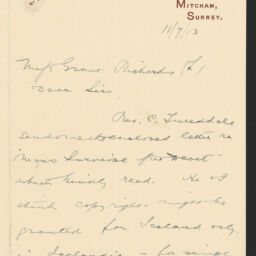 MITCHAM,
SURREY.
11/7/13
Messrs Grant Richards Ld
Dear Sir,
Rev. C. Tweedale
sends me the enclosed letter re
"Man's Survival after Death"
which kindly read. He & I
think copyright might be
granted for Iceland only,
in Icelandic & for single